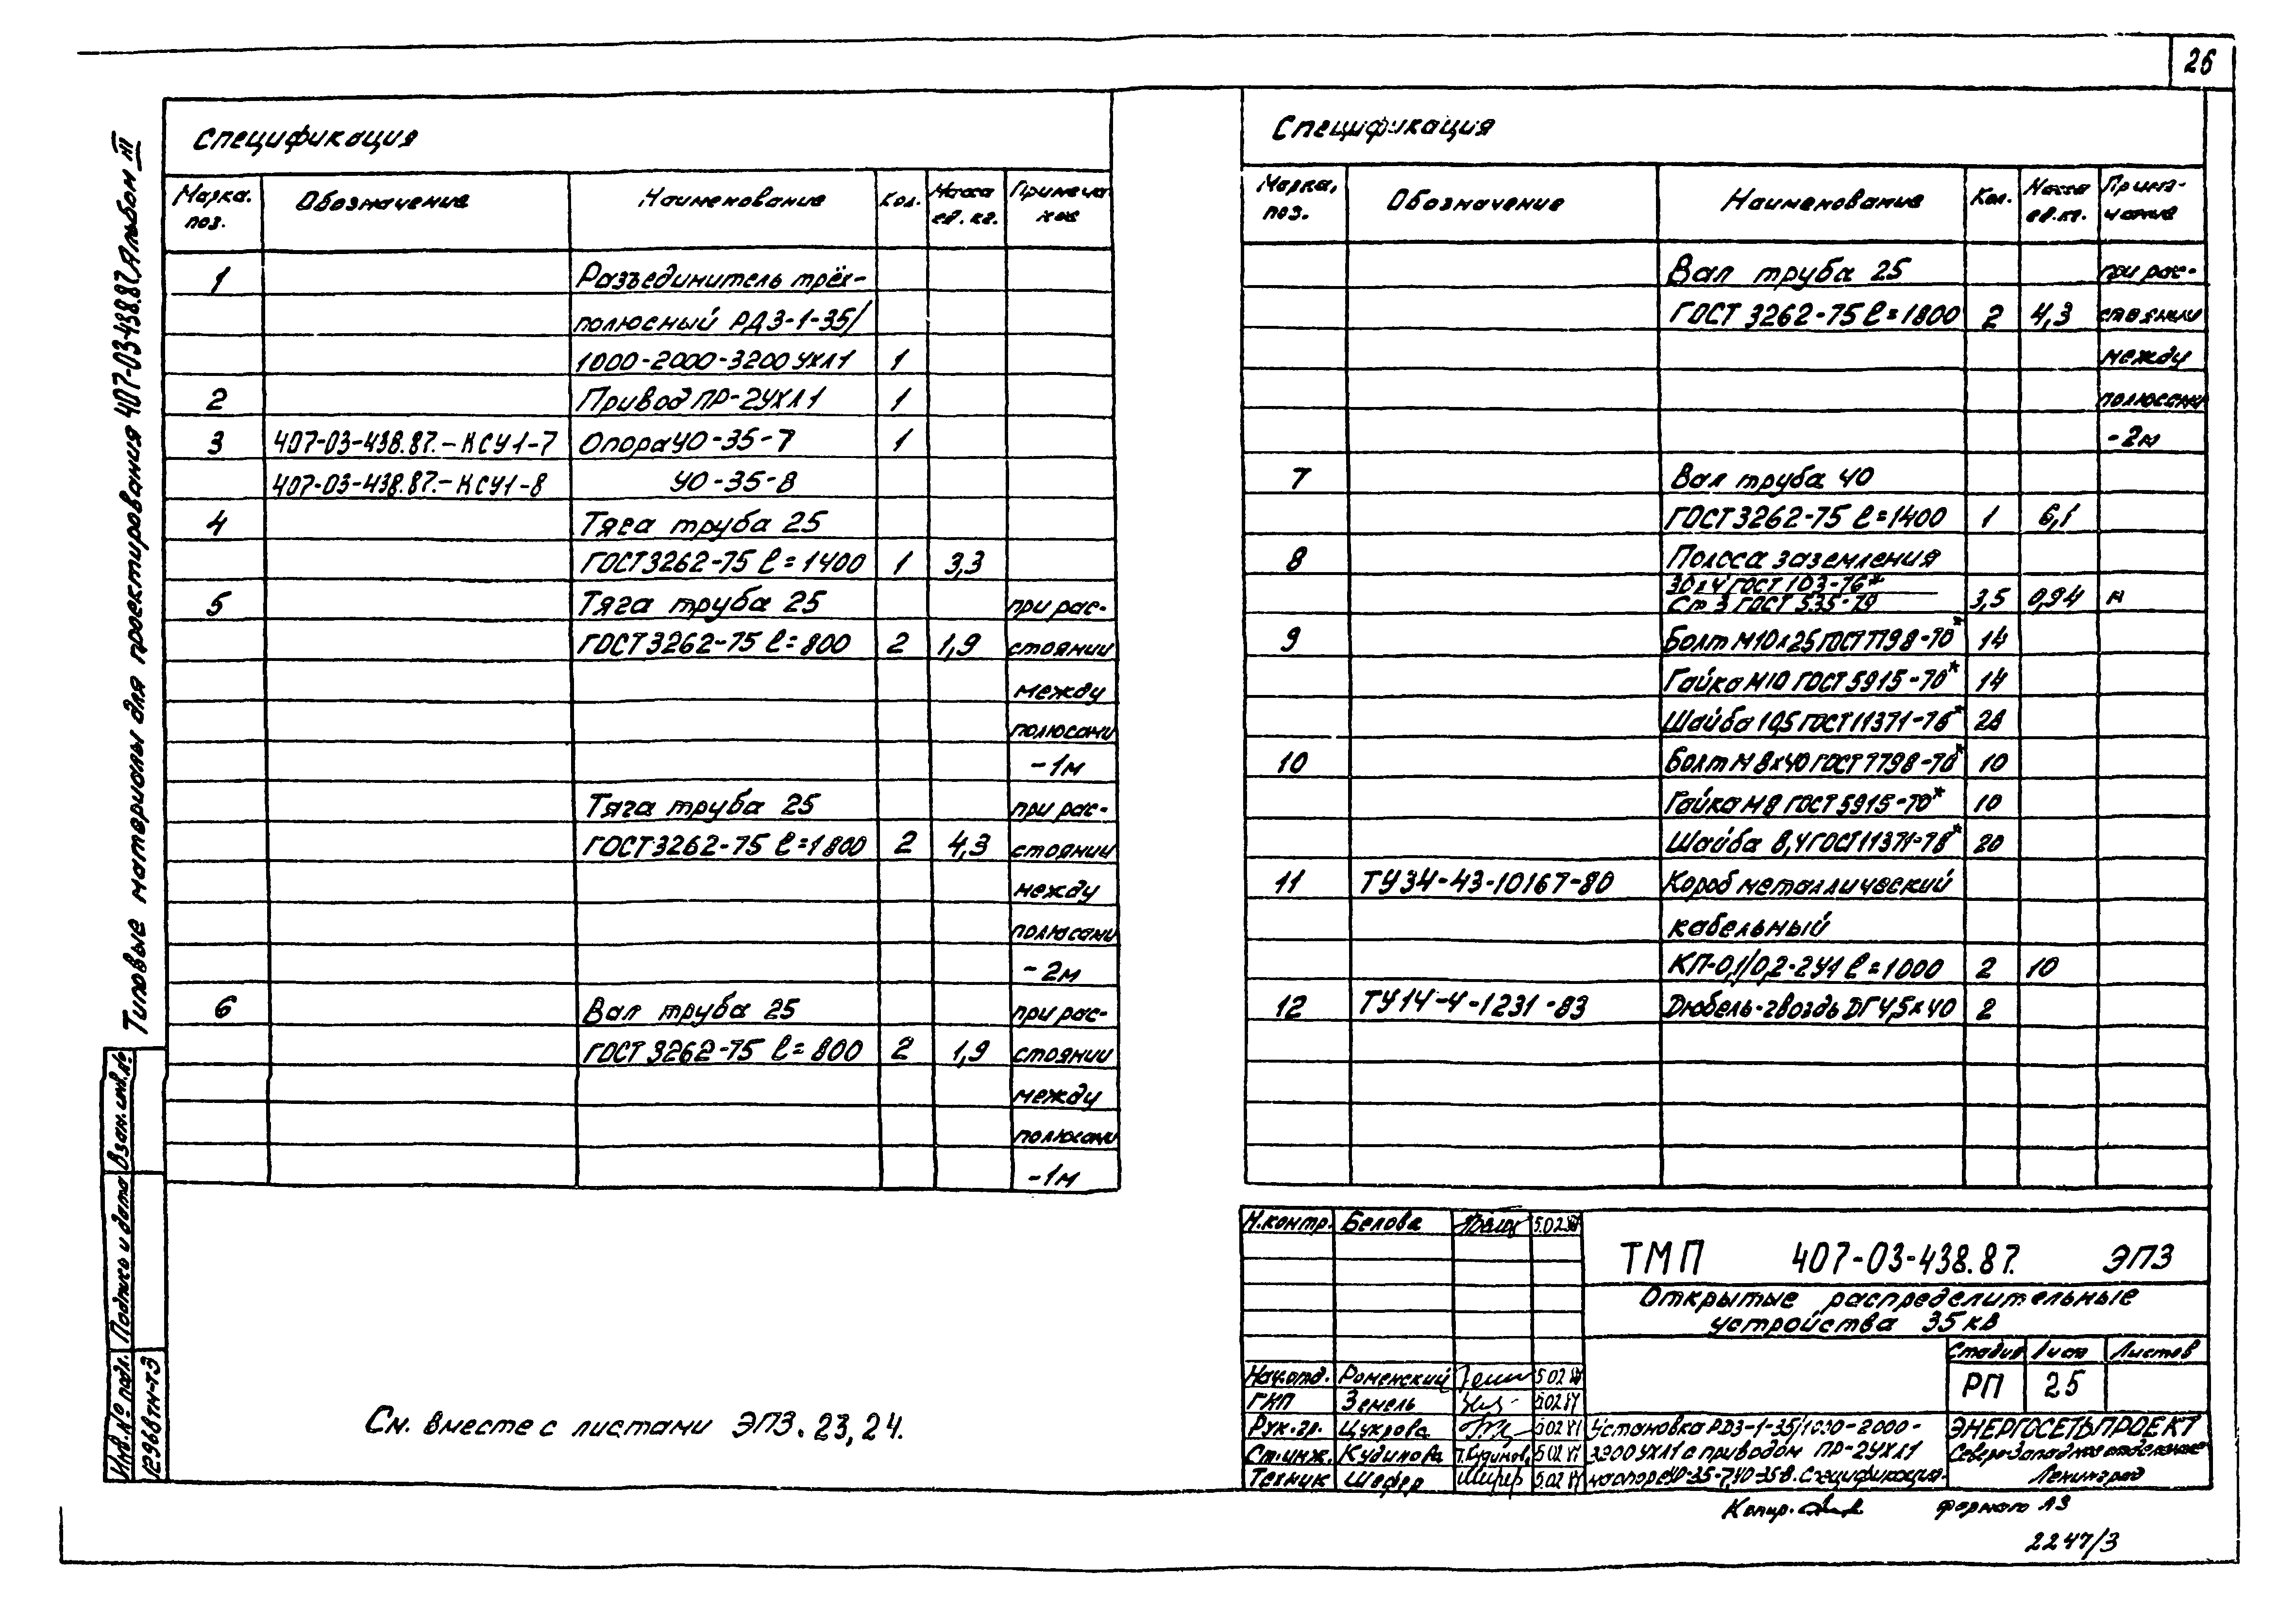 26
Спецификация
Марка. поз. Обозначение Наименование Кол. Масса ед. кг. Примеча ние
1 Разъединитель трёх-
полюсный РДЗ-1-35/
1000-2000-3200 УХЛ1 1
2 Привод ПР-2УХЛ1 1
3 407-03-438.87.-КСУ1-7 Опора УО-35-7 1
407-03-438.87.-КСУ1-8 УО-35-8
4 Тяга труба 25
ГОСТ 3262-75 ℓ=1400 1 3,3
5 Тяга труба 25 при рас-
ГОСТ 3262-75 ℓ=800 2 1,9 стоянии
между
полюсами
-1м
Тяга труба 25 при рас-
ГОСТ 3262-75 ℓ=1800 2 4,3 стоянии
между
полюсами
-2м
6 Вал труба 25 при рас-
ГОСТ 3262-75 ℓ=800 2 1,9 стоянии
между
полюсами
-1м
Спецификация
Марка, поз. Обозначение Наименование Кол. Масса ед.кг. Приме- чание
Вал труба 25 при рас-
ГОСТ 3262-75 ℓ=1800 2 4,3 стоянии
между
полюсами
-2м
7 Вал труба 40
ГОСТ 3262-75 ℓ=1400 1 6,1
8 Полоса заземления
30х4 ГОСТ 103-76*
Ст 3 ГОСТ 535-79 3,5 0,94 м
9 Болт М10х25 ГОСТ 7798-70* 14
Гайка М10 ГОСТ 5915-70* 14
Шайба 10,5 ГОСТ 11371-78* 28
10 Болт М8х40 ГОСТ 7798-70* 10
Гайка М8 ГОСТ 5915-70* 10
Шайба 8,4 ГОСТ 11371-78* 20
11 ТУ34-43-10167-80 Короб металлический
кабельный
КП-0,1/0,2-2У1 ℓ=1000 2 10
12 ТУ14-4-1231-83 Дюбель-гвоздь ДГ4,5х40 2
См. вместе с листами ЭПЗ.23,24.
Типовые материалы для проектирования 407-03-438.87 Альбом III
Взам. инв. №
Подпись и дата
Инв. № подл.
12968тм-т3
Н.контр. Белова 5.02.87
ТМП 407-03-438.87. ЭПЗ
Открытые распределительные
устройства 35 кВ
Стадия Лист Листов
РП 25
Нач.отд. Роменский 5.02.87
ГИП Земель 5.02.87
Рук.гр. Цукрова 5.02.87
Ст.инж. Кудинова Т.Кудинов. 5.02.87
Техник Шефер Шефер 5.02.87
Установка РДЗ-1-35/1000-2000-
3200 УХЛ1 с приводом ПР-2УХЛ1
на опоре УО-35-7, УО-35-8. Спецификация.
ЭНЕРГОСЕТЬПРОЕКТ
Северо-Западное отделение
Ленинград
Копир. формат А3
2247/3